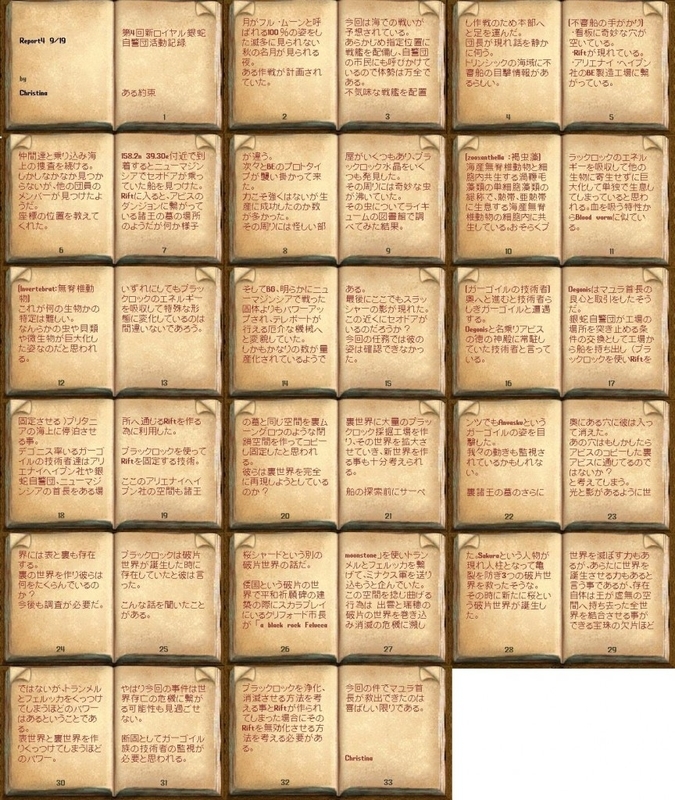 Report4 9/19
by
Christina
第4回新ロイヤル銀蛇
自警団活動記録
ある約束
1
月がフル・ムーンと呼
ばれる100%の姿をし
た滅多に見られない
秋の名月が見られる
夜。
ある作戦が計画され
ていた。
2
今回は海での戦いが
予想されている。
あらかじめ指定位置に
戦艦を配備し、自警団
の市民にも呼びかけて
いるので体勢は万全で
ある。
不気味な戦艦を配置
3
し作戦のため本部へ
と足を運んだ。
団長が現れ話を静か
に伺う。
トリンシックの海域に不
審船の目撃情報があ
るらしい。
4
[不審船の手がかり]
・看板に奇妙な穴が
空いている。
・Riftが現れている。
・アリエナイ・ヘイブン
社のBE製造工場に繋
がっている。
5
仲間達と乗り込み海
上の捜査を続ける。
しかしなかなか見つか
らないが、他の団員の
メンバーが見つけたよ
うだ。
座標の位置を教えて
くれた。
6
158.2s 39.30e付近で到
着するとニューマジン
シアでセオドアが乗っ
ていた船を見つけた。
Riftに入ると、アビスの
ダンジョンに繋がって
いる諸王の墓の場所
のようだが何か様子
7
が違う。
次々とBEのプロトタイ
プが襲い掛かって来
た。
力こそ強くはないが生
産に成功したのか数
が多かった。
その周りには怪しい部
8
屋がいくつもあり、ブラ
ックロック水晶をいく
つも発見した。
その周りには奇妙な虫
が沸いていた。
その虫についてライキ
ュームの図書館で調
べてみた結果。
9
[zooxanthella :褐虫藻]
海産無脊椎動物と細
胞内共生する渦鞭毛
藻類の単細胞藻類の
総称で、熱帯、亜熱帯
に生息する海産無脊
椎動物の細胞内に共
生している。おそらくブ
10
ラックロックのエネルギ
ーを吸収して他の生
物に寄生せずに巨
大化して単独で生息し
てしまっていると思わ
れる。血を吸う特性か
らBlood wormに似てい
る。
11
[Invertebrat:無脊椎動
物]
これが何の生物かの
特定は難しい。
なんらかの虫や貝類
や微生物が巨大化し
た姿なのだと思われ
る。
12
いずれにしてもブラッ
クロックのエネルギー
を吸収して特殊な形
態に変化しているのは
間違いないであろう。
13
そしてBG、明らかにニュ
ーマジンシアで戦った
固体よりもパワーアッ
プされ、テレポートが
行える厄介な機械へ
と変貌していた。
しかもかなりの数が量
産化されているようで
14
ある。
最後にここでもスラッ
シャーの影が現れた。
この近くにセオドアが
いるのだろうか?
今回の任務では彼の
姿は確認できなかっ
た。
15
[ガーゴイルの技術者]
奥へと進むと技術者ら
しきガーゴイルと遭遇
する。
Degonisと名乗りアビス
の徳の神殿に常駐し
ていた技術者と言って
いる。
16
Degonisはマユラ首長の
良心と取引をしたそう
だ。
銀蛇自警団が工場の
場所を突き止める条
件の交換として工場か
ら船を持ち出し(ブラッ
クロックを使いRiftを
17
固定させる)ブリタニ
アの海上に停泊させ
る事。
デゴニス率いるガーゴ
イルの技術者達はアリ
エナイヘイブン社や銀
蛇自警団、ニューマジ
ンシアの首長をある場
18
所へ通じるRiftを作る
為に利用した。
ブラックロックを使って
Riftを固定する技術。
ここのアリエナイヘイ
ブン社の空間も諸王
19
の墓と同じ空間を裏ム
ーングロウのような閉
鎖空間を作ってコピー
し固定したと思われ
る。
彼らは裏世界を完全
に再現しようとしている
のか?
20
裏世界に大量のブラッ
クロック採掘工場を作
り、その世界を拡大さ
せていき、新世界を作
る事も十分考えられ
る。
船の探索前にサーペ
21
ンツでもAnveskaという
ガーゴイルの姿を目
撃した。
我々の動きも監視さ
れているかもしれな
い。
裏諸王の墓のさらに
22
奥にある穴に彼は入
って消えた。
あの穴はもしかしたら
アビスのコピーした裏
アビスに通じてるので
はないか?
と考えてしまう。
光と影があるように世
23
界には表と裏も存在
する。
裏の世界を作り彼らは
何をたくらんでいるの
か?
今後も調査が必要だ。
24
ブラックロックは破片
世界が誕生した時に
存在していたと彼は言
った。
こんな話を聞いたこと
がある。
25
桜シャードという別の
破片世界の話だ。
倭国という破片の世
界で平和祈願碑の建
築の際にスカラブレイ
にいるクリフォード市長
が「a black rock Felucca
26
moonstone」を使いトラン
メルとフェルッカを繋
げて、ミナクス軍を送り
込もうと企んでいた。
この空間を捻り曲げる
行為は 出雲と瑞穂の
破片の世界を巻き込
み消滅の危機に瀕し
27
た。Sakuraという人物が
現れ人柱となって亀
裂を防ぎ3つの破片世
界を救ったそうな。
その時に新たに桜とい
う破片世界が誕生し
た。
28
世界を滅ぼす力もあ
るが、あらたに世界を
誕生させる力もあると
言う事であるが、存在
自体は王が虚無の空
間へ持ち去った全世
界を結合させる事が
できる宝珠の欠片ほど
29
ではないが、トランメル
とフェルッカをくっつけ
てしまうほどのパワー
はあるということであ
る。
表世界と裏世界を作
りくっつけてしまうほど
のパワー。
30
やはり今回の事件は世
界存亡の危機に繋が
る可能性も見過ごせ
ない。
断固としてガーゴイル
族の技術者の監視が
必要と思われる。
31
ブラックロックを浄化、
消滅させる方法を考
える事とRiftが作られ
てしまった場合にその
Riftを無効化させる方
法を考える必要があ
る。
32
今回の件でマユラ首
長が救出できたのは
喜ばしい限りである。
Christina
33